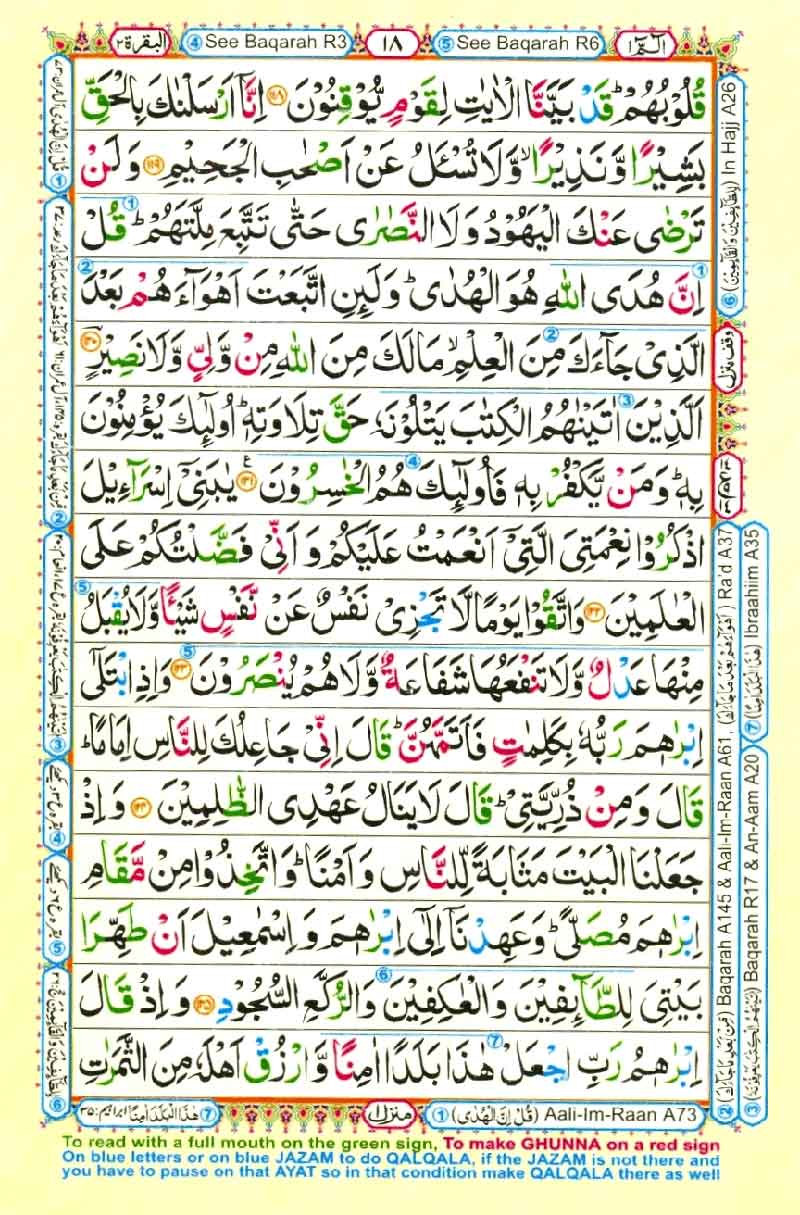 الٓمّٓ ١
⑤ See Baqarah R6
١٨
④ See Baqarah R3
البقرة ٢
قُلُوْبُهُمْ ؕ قَدْ بَیَّنَّا الْاٰیٰتِ لِقَوْمٍ یُّوْقِنُوْنَ ﴿۱۱۸﴾ اِنَّاۤ اَرْسَلْنٰكَ بِالْحَقِّ
بَشِیْرًا وَّ نَذِیْرًا ۙ وَّ لَا تُسْـَٔلُ عَنْ اَصْحٰبِ الْجَحِیْمِ ﴿۱۱۹﴾ وَ لَنْ
تَرْضٰی عَنْكَ الْیَهُوْدُ وَ لَا النَّصٰرٰی حَتّٰی تَتَّبِعَ مِلَّتَهُمْ ؕ قُلْ
اِنَّ هُدَی اللّٰهِ هُوَ الْهُدٰی ؕ وَ لَىِٕنِ اتَّبَعْتَ اَهْوَآءَهُمْ بَعْدَ
الَّذِیْ جَآءَكَ مِنَ الْعِلْمِ ۙ مَا لَكَ مِنَ اللّٰهِ مِنْ وَّلِیٍّ وَّ لَا نَصِیْرٍ ﴿۱۲۰﴾
اَلَّذِیْنَ اٰتَیْنٰهُمُ الْكِتٰبَ یَتْلُوْنَهٗ حَقَّ تِلَاوَتِهٖ ؕ اُولٰٓىِٕكَ یُؤْمِنُوْنَ
بِهٖ ؕ وَ مَنْ یَّكْفُرْ بِهٖ فَاُولٰٓىِٕكَ هُمُ الْخٰسِرُوْنَ ﴿۱۲۱﴾ یٰبَنِیْۤ اِسْرَآءِیْلَ
اذْكُرُوْا نِعْمَتِیَ الَّتِیْۤ اَنْعَمْتُ عَلَیْكُمْ وَ اَنِّیْ فَضَّلْتُكُمْ عَلَی
الْعٰلَمِیْنَ ﴿۱۲۲﴾ وَ اتَّقُوْا یَوْمًا لَّا تَجْزِیْ نَفْسٌ عَنْ نَّفْسٍ شَیْـًٔا وَّ لَا یُقْبَلُ
مِنْهَا عَدْلٌ وَّ لَا تَنْفَعُهَا شَفَاعَةٌ وَّ لَا هُمْ یُنْصَرُوْنَ ﴿۱۲۳﴾ وَ اِذِ ابْتَلٰۤی
اِبْرٰهٖمَ رَبُّهٗ بِكَلِمٰتٍ فَاَتَمَّهُنَّ ؕ قَالَ اِنِّیْ جَاعِلُكَ لِلنَّاسِ اِمَامًا ؕ
قَالَ وَ مِنْ ذُرِّیَّتِیْ ؕ قَالَ لَا یَنَالُ عَهْدِی الظّٰلِمِیْنَ ﴿۱۲۴﴾ وَ اِذْ
جَعَلْنَا الْبَیْتَ مَثَابَةً لِّلنَّاسِ وَ اَمْنًا ؕ وَ اتَّخِذُوْا مِنْ مَّقَامِ
اِبْرٰهٖمَ مُصَلًّی ؕ وَ عَهِدْنَاۤ اِلٰۤی اِبْرٰهٖمَ وَ اِسْمٰعِیْلَ اَنْ طَهِّرَا
بَیْتِیَ لِلطَّآىِٕفِیْنَ وَ الْعٰكِفِیْنَ وَ الرُّكَّعِ السُّجُوْدِ ﴿۱۲۵﴾ وَ اِذْ قَالَ
اِبْرٰهٖمُ رَبِّ اجْعَلْ هٰذَا بَلَدًا اٰمِنًا وَّ ارْزُقْ اَهْلَهٗ مِنَ الثَّمَرٰتِ
⑥ (لِلطَّآىِٕفِیْنَ وَ الْقَآىِٕمِیْنَ) In Hajj A26
وقف منزل
② Baqarah A145 & Aali-Im-Raan A61, Ra'd A37
③ Baqarah R17 & An-Aam A20
⑦ (هٰذَا الْبَلَدَ اٰمِنًا) Ibraahiim A35
① (قُلْ اِنَّ الْهُدٰی) Aali-Im-Raan A73
منزل ١
⑦ هٰذَا الْبَلَدَ اٰمِنًا ابراهیم: ۳۵
To read with a full mouth on the green sign, To make GHUNNA on a red sign
On blue letters or on blue JAZAM to do QALQALA, if the JAZAM is not there and
you have to pause on that AYAT so in that condition make QALQALA there as well